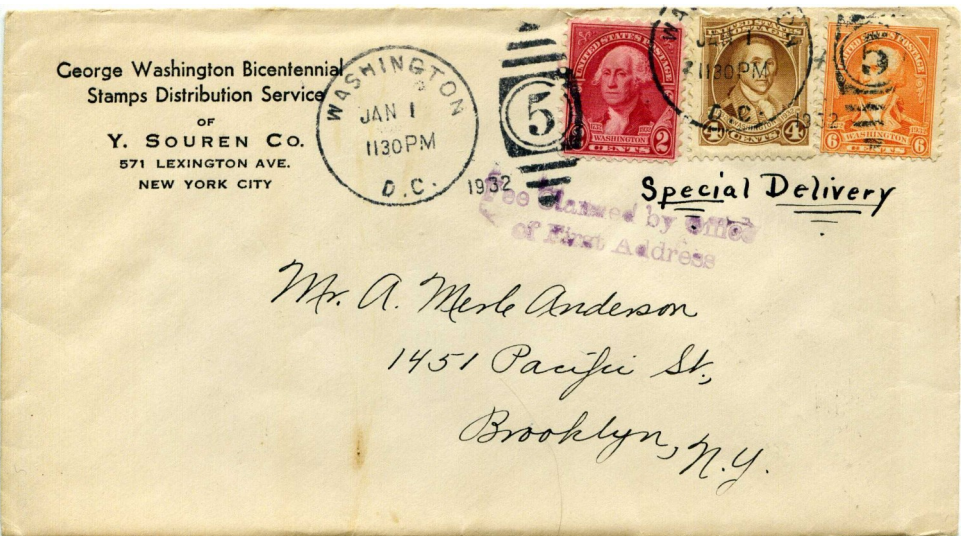 George Washington Bicentennial
Stamps Distribution Service
OF
Y. SOUREN CO.
571 LEXINGTON AVE.
NEW YORK CITY
WASHINGTON
JAN 1
1130 PM
D.C.
1932
5
UNITED STATES POSTAGE
1732 1932
WASHINGTON
2 CENTS 2
WA
JAN 1
1130 PM
D.C.
1932
UNITED STATES
POSTAGE
4 CENTS 4
5
POSTAGE
WASHINGTON
6 CENTS 6
Special Delivery
Fee Claimed by Office
of First Address
Mr. A. Merle Anderson
1451 Pacific St.,
Brooklyn, N.Y.